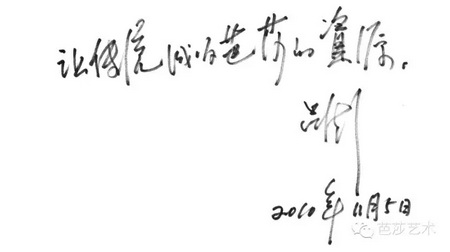 让传统成为芭莎的资源。
2010年11月5日
芭莎艺术